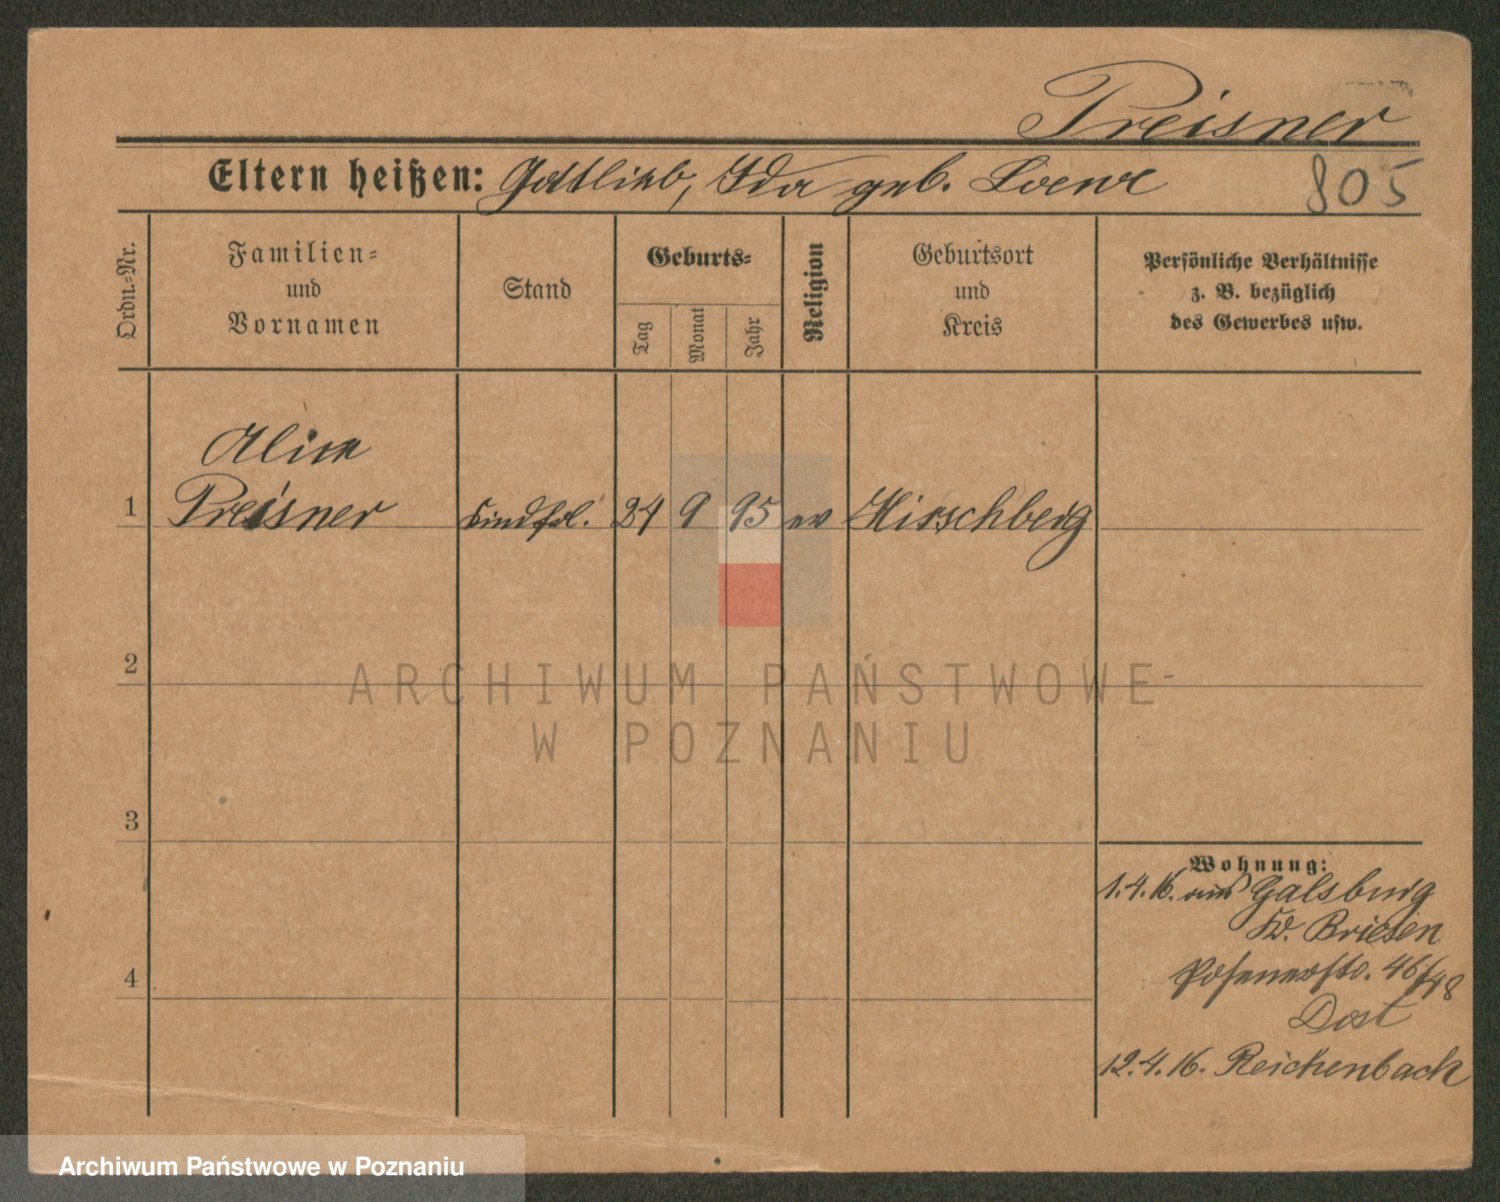 Preisner
Eltern heißen: Gottlieb, Ida geb. Loewe
805
Ordn.=Nr.
Familien=
und
Vornamen
Stand
Geburts=
Tag
Monat
Jahr
Religion
Geburtsort
und
Kreis
Persönliche Verhältnisse
z. B. bezüglich
des Gewerbes usw.
Alice
1 Preisner Kindfrl. 24 9 95 ev Hirschberg
2
ARCHIWUM PAŃSTWOWE
W POZNANIU
3
Wohnung:
1.4.16. aus Galsburg
Kr. Briesen
4
Posenerstr. 46/48
Dost
12.4.16. Reichenbach
Archiwum Państwowe w Poznaniu